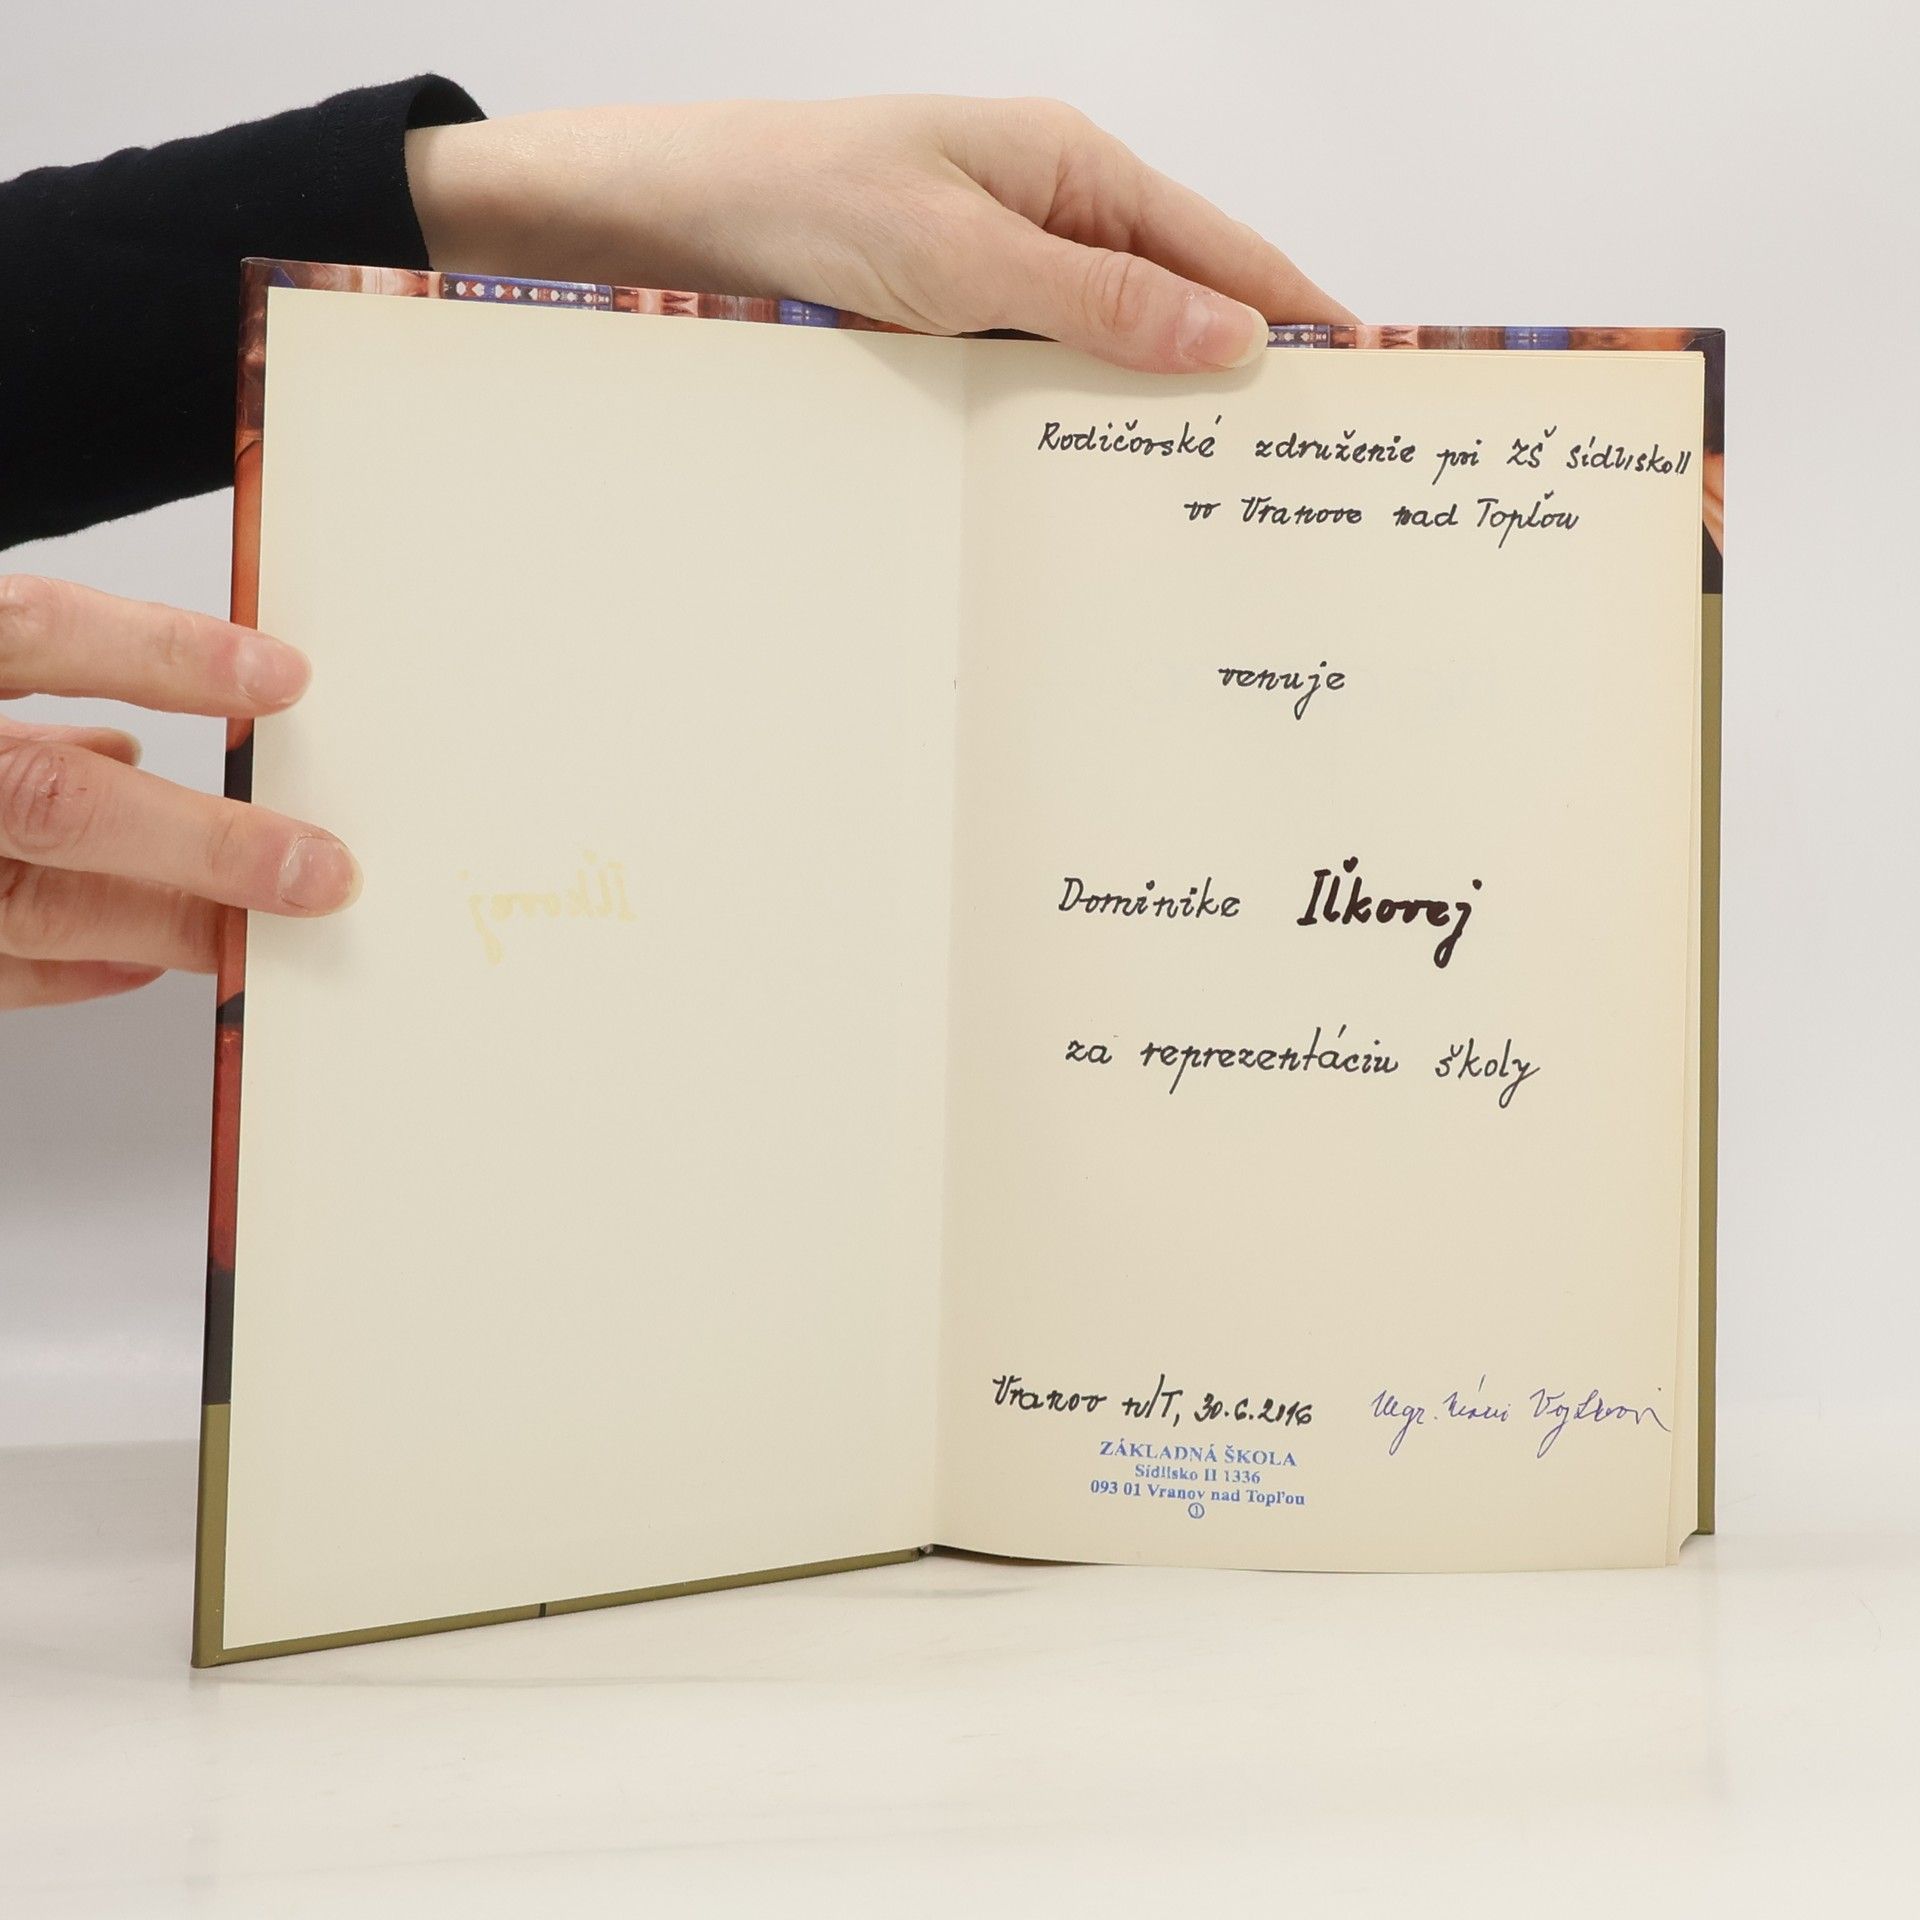 Rodičovské združenie pri ZŠ Sídlisko II
vo Vranove nad Topľou
venuje
Dominike Iľkovej
za reprezentáciu školy
Vranov n/T, 30.6.2016 Mgr.
ZÁKLADNÁ ŠKOLA
Sídlisko II 1336
093 01 Vranov nad Topľou
1